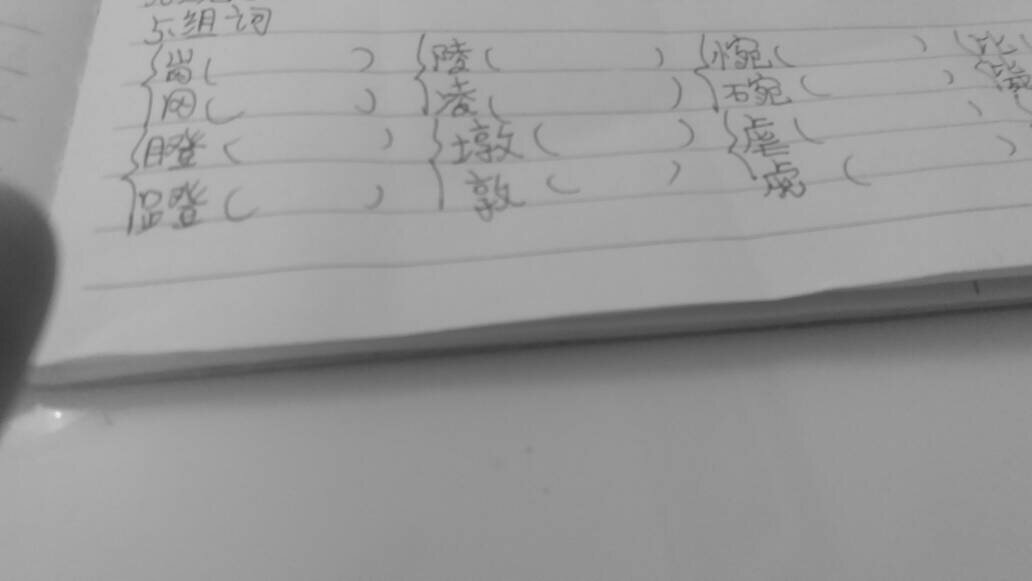 5.组词
岗( ) 陵( ) 惋( )
冈( ) 凌( ) 碗( )
瞪( ) 墩( ) 虐( )
蹬( ) 敦( ) 虎( )